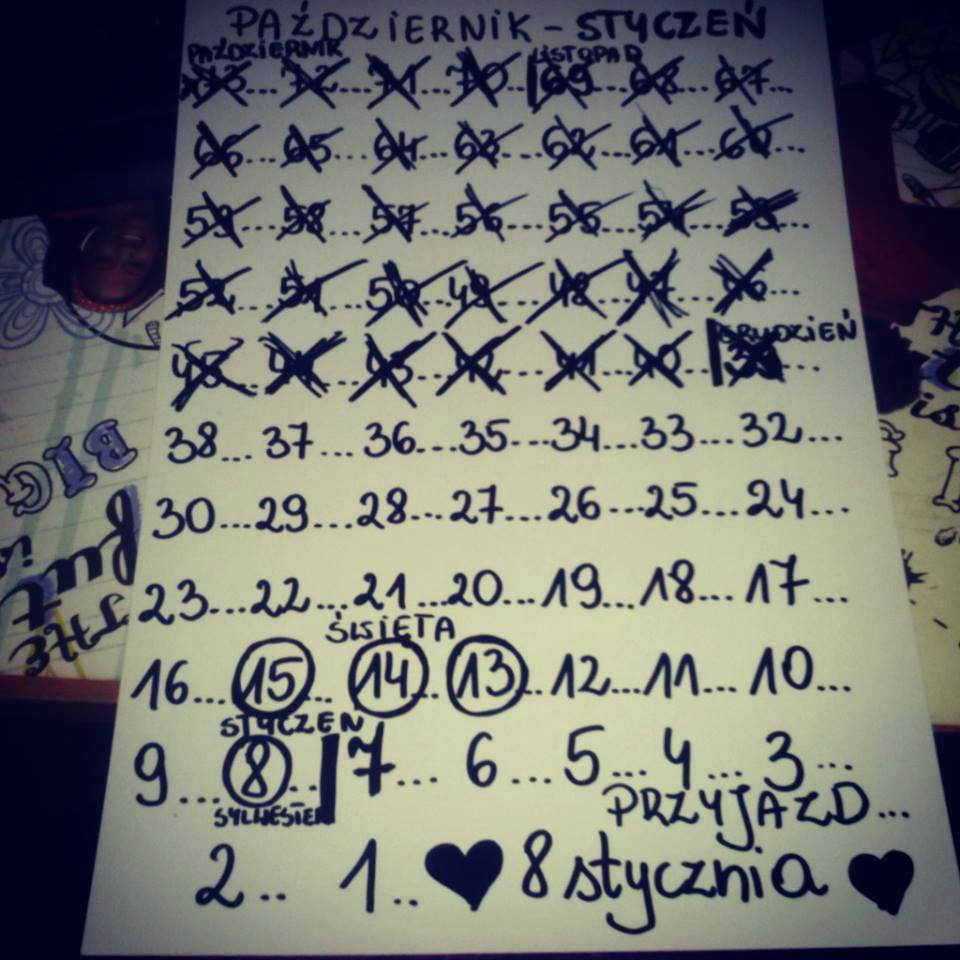 PAŹDZIERNIK - STYCZEŃ
PAŹDZIERNIK LISTOPAD
73... 72... 71... 70... 69... 68... 67...
66... 65... 64... 63... 62... 61... 60...
59... 58... 57... 56... 55... 54... 53...
52... 51... 50... 49... 48... 47... 46...
GRUDZIEŃ
45... 44... 43... 42... 41... 40... 39...
38... 37... 36... 35... 34... 33... 32...
30... 29... 28... 27... 26... 25... 24...
23... 22... 21... 20... 19... 18... 17...
ŚWIĘTA
16... 15... 14... 13... 12... 11... 10...
STYCZEŃ
9... 8... 7... 6... 5... 4... 3...
SYLWESTER PRZYJAZD...
2.. 1.. ♥ 8 stycznia ♥
BIG
put
THE
is